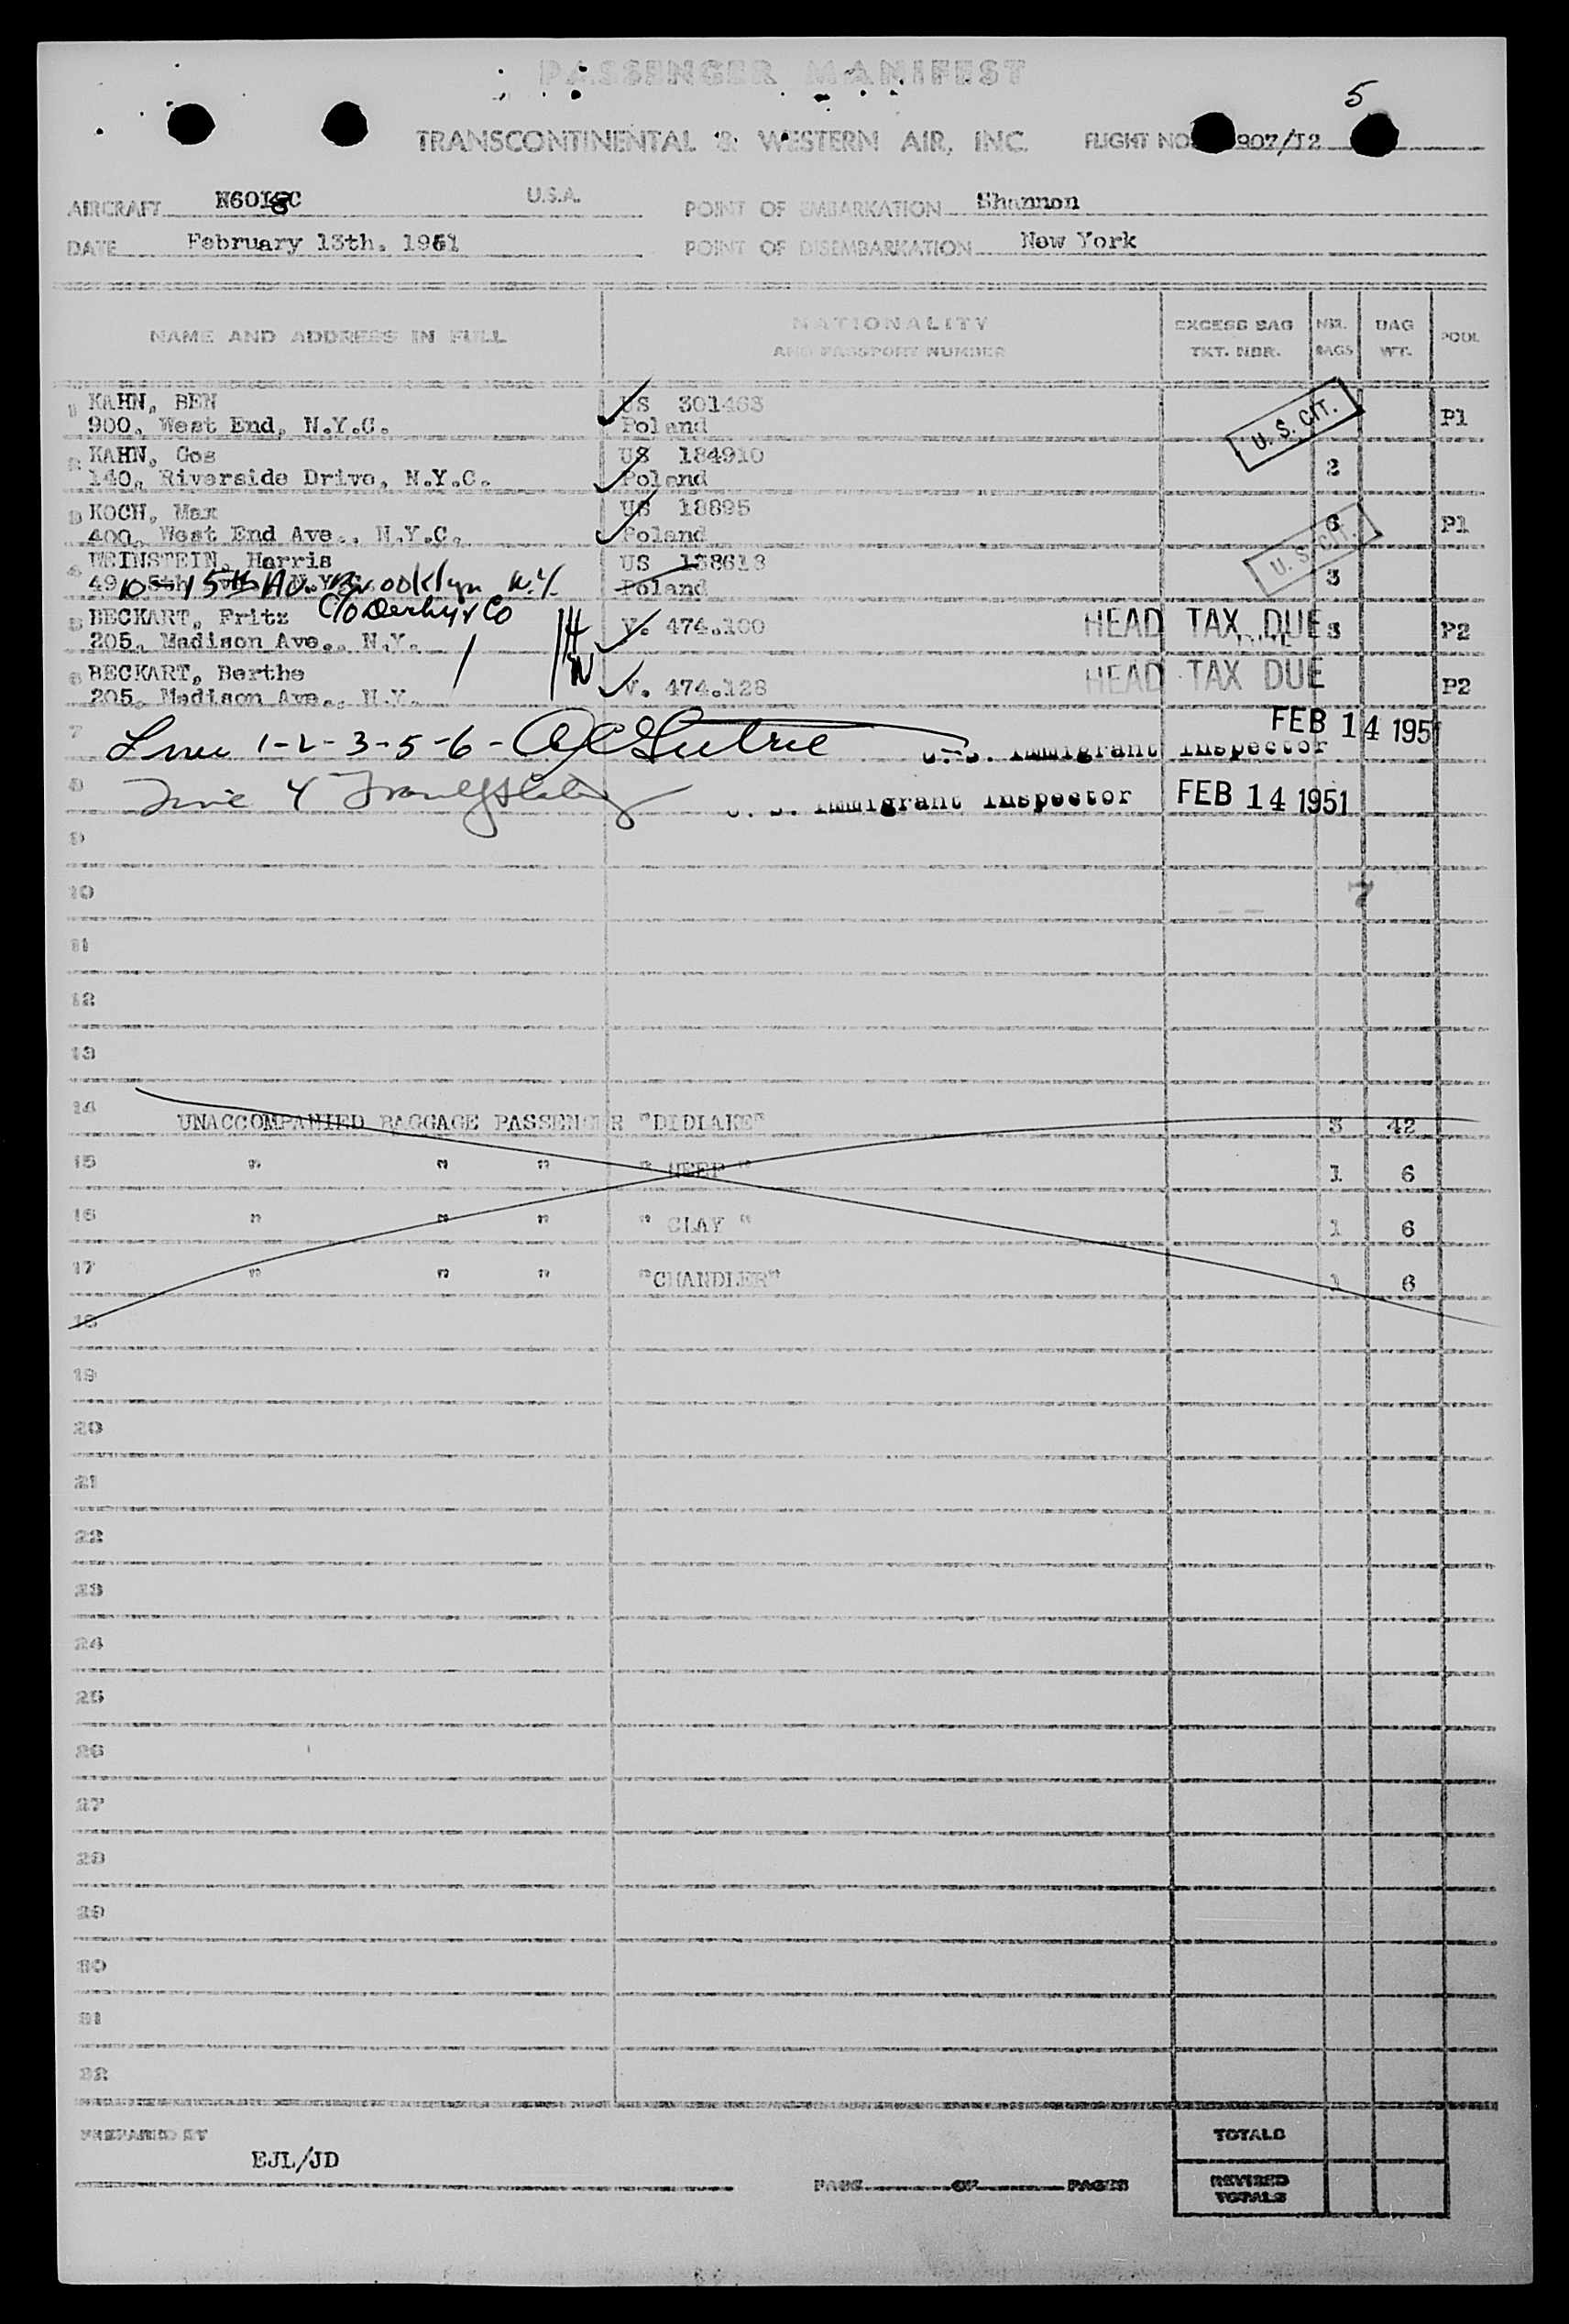 PASSENGER MANIFEST
5
TRANSCONTINENTAL & WESTERN AIR, INC. FLIGHT NO. 907/12
AIRCRAFT N6018C U.S.A. POINT OF EMBARKATION Shannon
DATE February 13th. 1951 POINT OF DISEMBARKATION New York
NAME AND ADDRESS IN FULL NATIONALITY AND PASSPORT NUMBER EXCESS BAG TKT. NBR. NBR. BAGS BAG WT. POOL
1 KAHN, BEN US 301463 U. S. CIT.
900, West End, N.Y.C. Poland P1
2 KAHN, Gos US 184910
140, Riverside Drive, N.Y.C. Poland 2
3 KOCH, Max US 18895 6 P1
400, West End Ave., N.Y.C. Poland U. S. CIT.
4 WEINSTEIN, Harris US 138613
49 5th N.Y. 10-15th Av. Brooklyn N.Y. Poland 3
5 BECKART, Fritz c/o Derby & Co V. 474.100 HEAD TAX DUE 3 P2
205, Madison Ave., N.Y.
6 BECKART, Berthe V. 474.128 HEAD TAX DUE P2
205, Madison Ave., N.Y.
7 Line 1-2-3-5-6- U. S. Immigrant Inspector FEB 14 1951
8 Line 4 U. S. Immigrant Inspector FEB 14 1951
9
10 7
11
12
13
14 UNACCOMPANIED BAGGAGE PASSENGER "DIDIAKE" 3 42
15 " " " " HEEP " 1 6
16 " " " " CLAY " 1 6
17 " " " "CHANDLER" 1 6
18
19
20
21
22
23
24
25
26
27
28
29
30
31
32
PREPARED BY
EJL/JD
PAGE OF PAGES
TOTALS
REVISED TOTALS